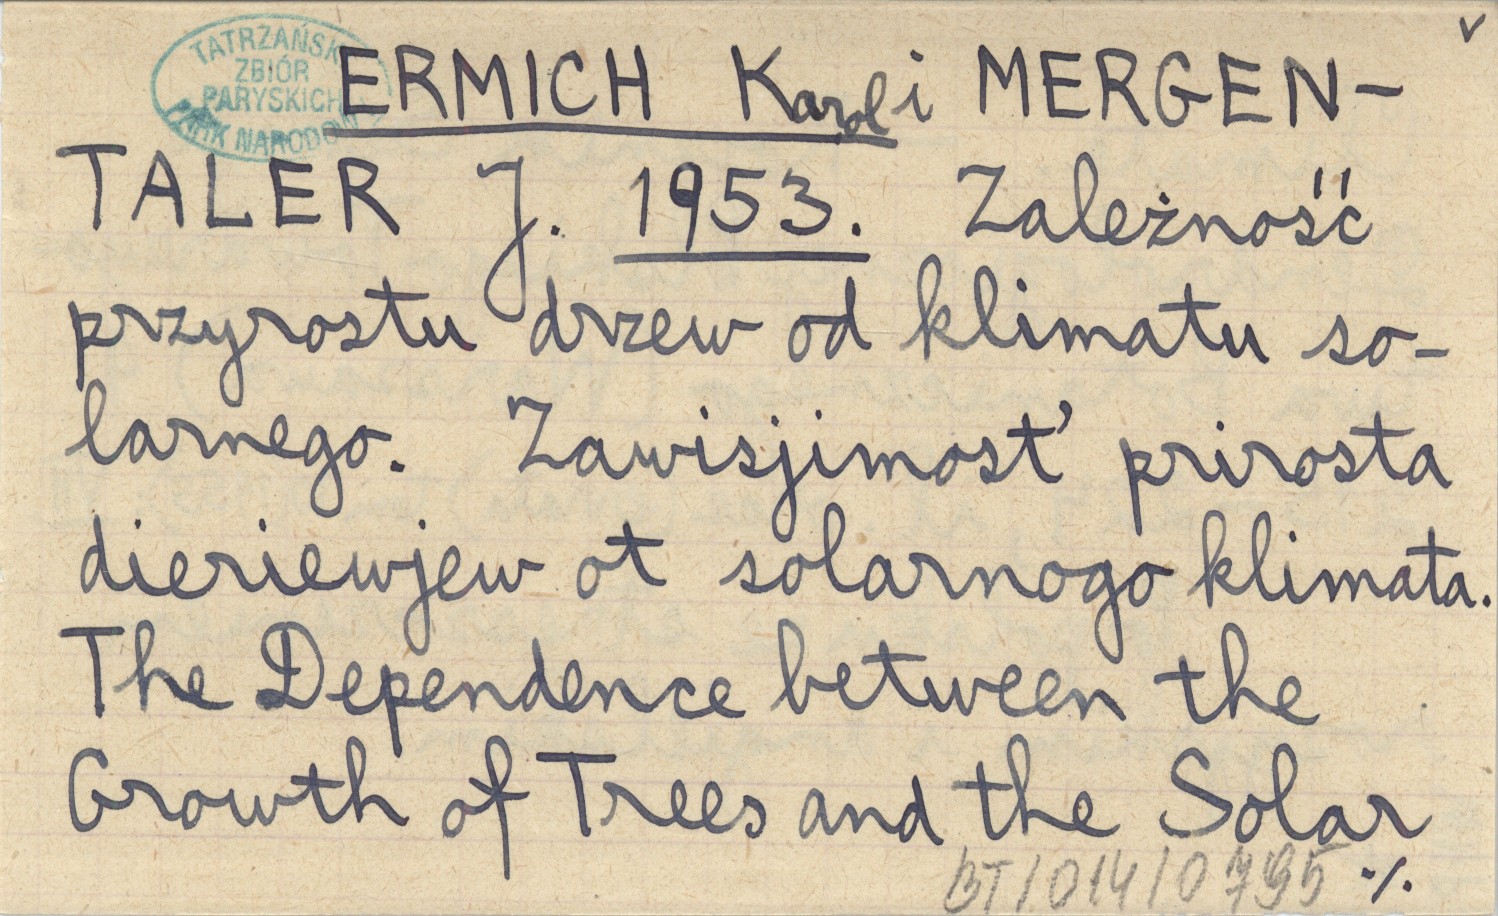 TATRZAŃSKI
ZBIÓR
PARYSKICH
PARK NARODOWY
ERMICH Karol i MERGEN-
TALER J. 1953. Zależność
przyrostu drzew od klimatu so-
larnego. Zawisjimost' prirosta
dieriewjew ot solarnogo klimata.
The Dependence between the
Growth of Trees and the Solar
BT/014/0795 ./.